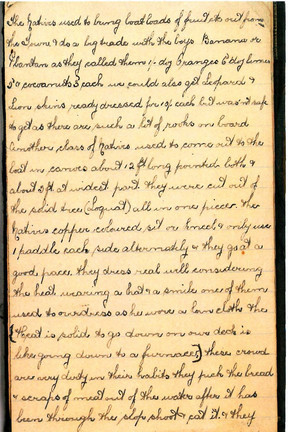 The Natives used to bring boat loads of fruit etc out from
the Town & do a big trade with the boys Bananas or
Plantans as they called them 1/- dg Oranges 8d dg limes
3d & cocoanuts 3 each we could also get Leopard &
Lion skins ready dressed for each but was not safe
to get as there are such a lot of rooks on board
Another class of natives used to come out to the
boat in canoes about 12 ft long pointed both &
about 2ft at widest part they were cut out of
the solid tree (Loquat) all in one piece. The
Natives copper coloured sit or kneel & only use
1 paddle each side alternately & they go at a
good pace, they dress real well considering
the heat wearing a hat & a smile one of them
used to overdress as he wore a loin cloth the
{Heat is solid to go down on our deck is
like going down to a furnace} these crowd
are very dirty in their habits they pick the bread
& scraps of meat out of the water after it has
been through the slop shoot & eat it & they